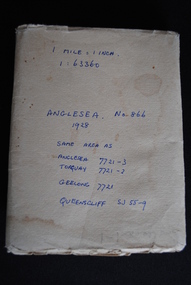 1 MILE = 1 INCH.
1 : 63360
ANGLESEA. No. 866
1928
SAME AREA AS
ANGLESEA 7721-3
TORQUAY 7721-2
GEELONG 7721
QUEENSCLIFF SJ 55-9